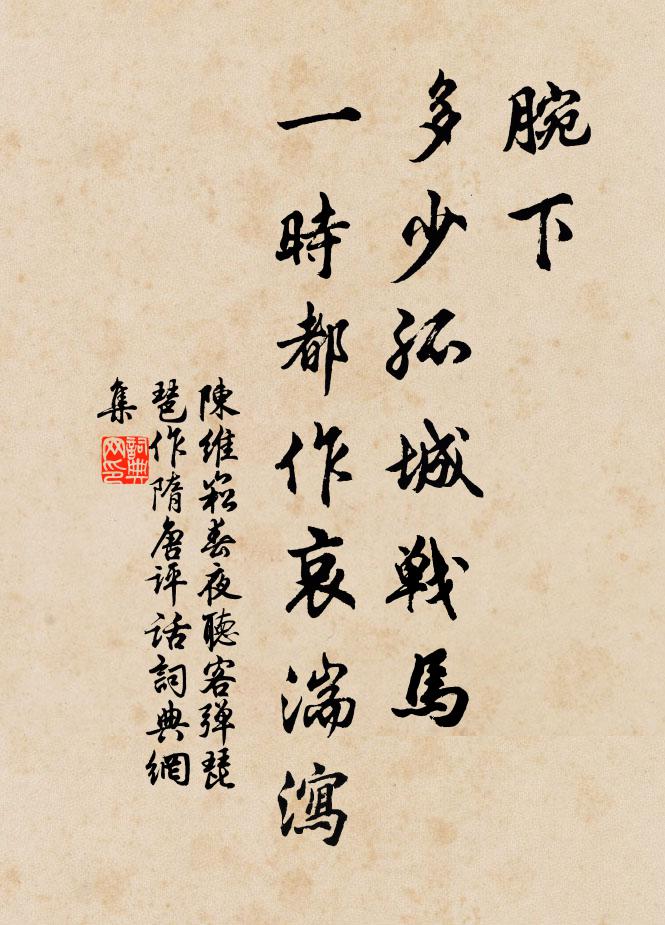 腕下
多少孤城戦馬
一時都作哀湍瀉
陳維崧春夜聽客彈琵
琶作隋唐評話詞典網
集
詞典
网印